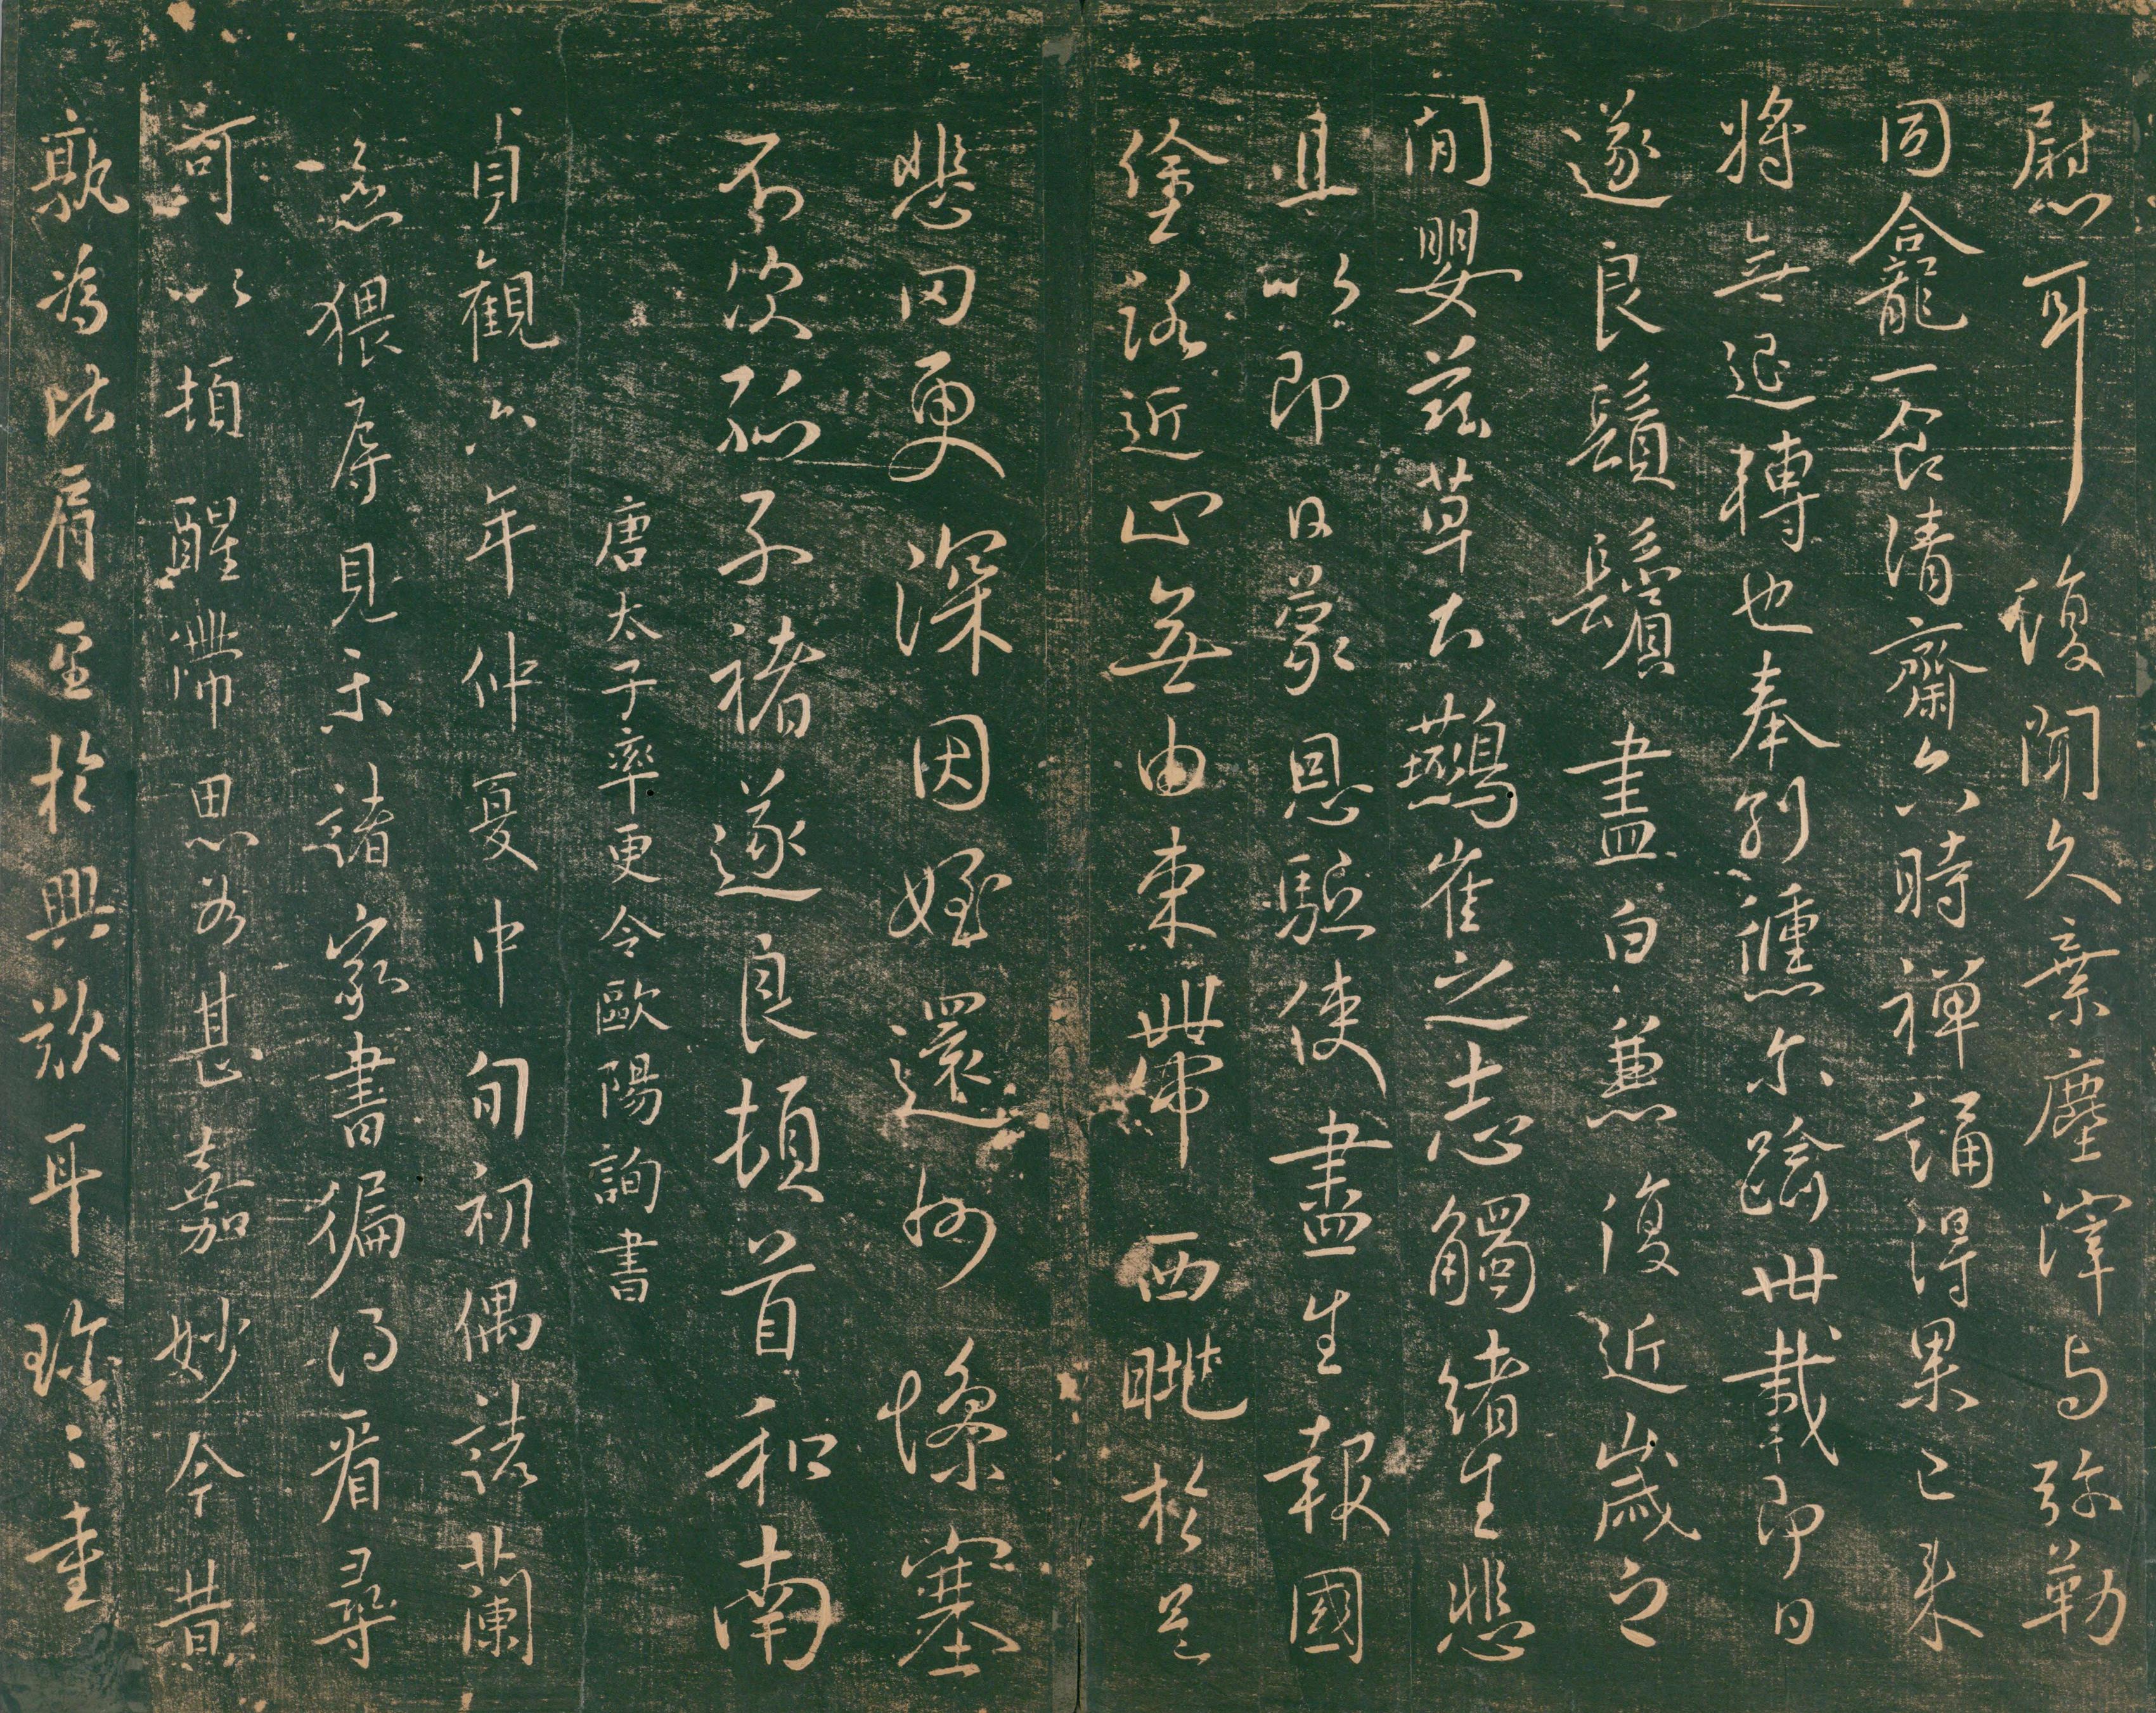 慰耳復聞久棄塵滓与弥勒
同龕一食清齋六時禪誦得果已来
將無退轉也奉別倏尔踰卅載即日
遂良鬚鬢盡白兼復近歲之
間嬰茲草土鷰雀之志觸緒生悲
且以即日蒙恩驅使盡生報國
塗路近止無由束帶西眺於邑
悲罔更深因姪還州慘塞
不次孤子褚遂良頓首和南
唐太子率更令歐陽詢書
貞觀六年仲夏中旬初偶諸蘭
猥辱見示諸家書徧得看尋
可以頓醒滯思為甚嘉妙今昔
孰為比肩至於興歎耳珍々重